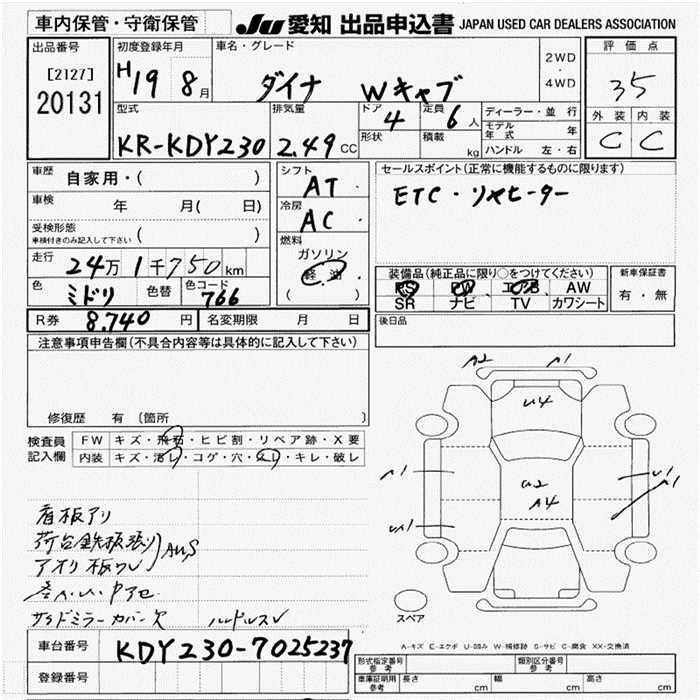 車内保管・守衛保管
JU 愛知 出品申込書 JAPAN USED CAR DEALERS ASSOCIATION
出品番号
[2127]
20131
初度登録年月
H19 8月
車名・グレード
ダイナ Wキャブ
2WD
・
4WD
評価点
35
外装 内装
C C
型式
KR-KDY230
排気量
2.49 CC
ドア 4
形状
定員 6 人
積載 kg
ディーラー・並行
モデル年式 年
ハンドル 左・右
車歴 自家用・( )
車検 年 月( 日)
受検形態
車検付きのみ記入して下さい ( )
走行 24万1千750km
色 ミドリ 色替 色コード 766
R券 8.740円 名変期限 月 日
シフト AT
冷房 AC
燃料
ガソリン
軽油
( )
セールスポイント(正常に機能するものに限ります)
ETC・リヤヒーター
装備品(純正品に限り○をつけてください)
PS PW エアB AW
SR ナビ TV カワシート
新車保証書
有・無
後日品
注意事項申告欄(不具合内容等は具体的に記入して下さい)
修復歴 有 〔箇所 〕
検査員記入欄
FW キズ・飛石・ヒビ割・リペア跡・X要
内装 キズ・汚レ・コゲ・穴・スレ・キレ・破レ
A2 A1
U4
A1
U2
A4
U1
A1
U1
看板アリ
荷台鉄板張り
アオリ板ワレ
サイドミラーカバー欠
スペア
A-キズ E-エクボ U-凹み W-補修跡 S-サビ C-腐食 XX-交換済
車台番号 KDY230-7025237
登録番号
形式指定番号 参考
類別区分番号 参考
車庫証明用 参考 長さ cm 幅 cm 高さ cm